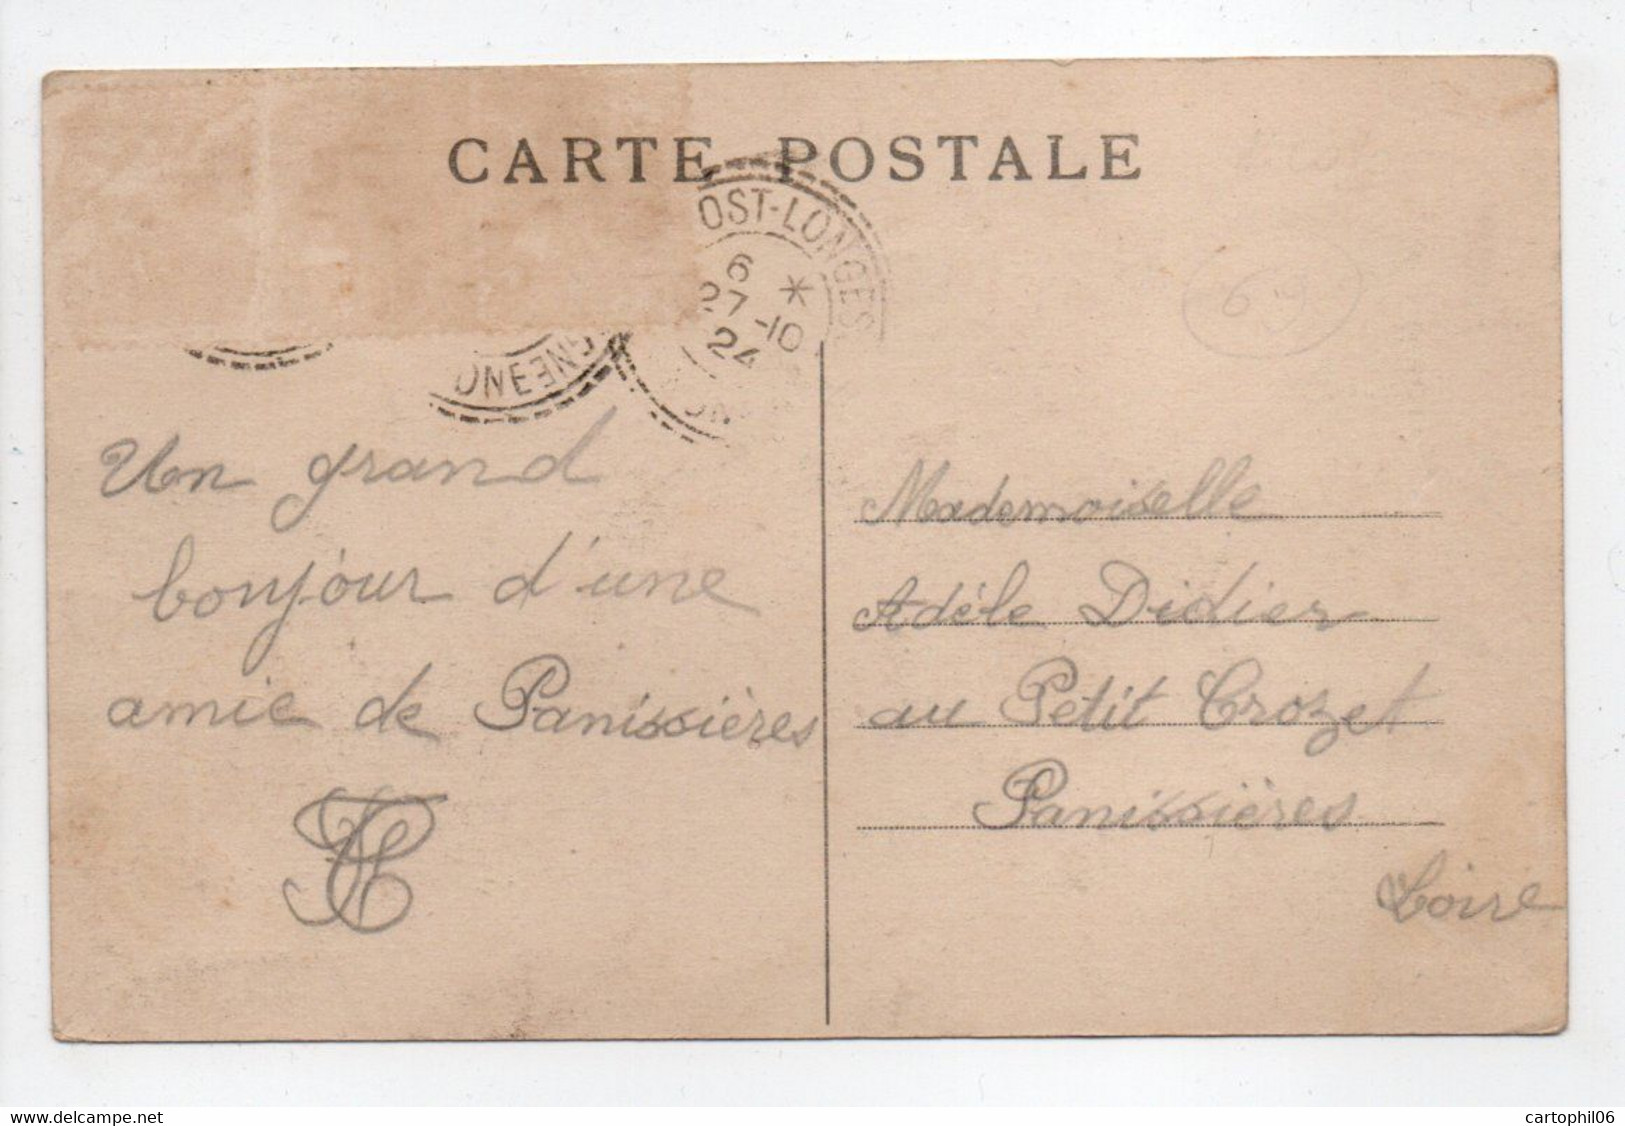 CARTE POSTALE
OST-LONGES
6 *
27-10
24
Un grand
bonjour d'une
amie de Panissières
Mademoiselle
Adèle Didier
au Petit Crozet
Panissières
Loire
delcampe.net
cartophil06